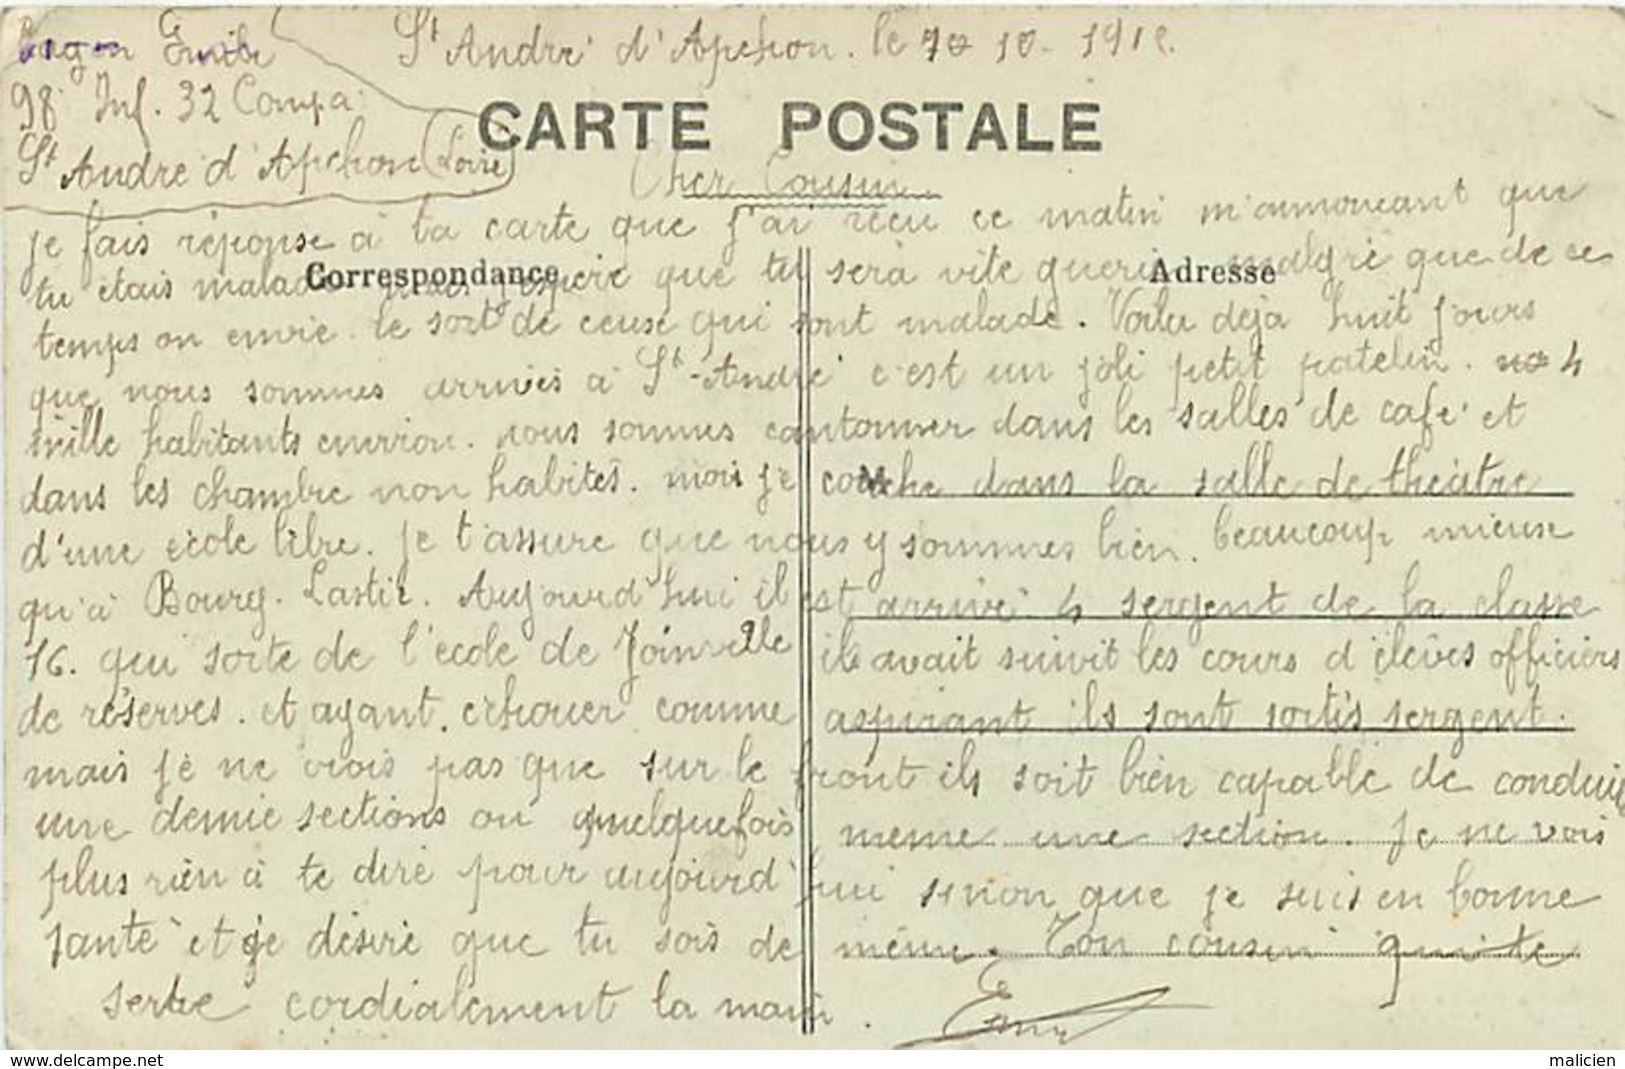 Emile
St André d'Apchon. le 10 - 191
98. Inf. 32 Compa
CARTE POSTALE
St André d'Apchon (Loire)
Cher Cousin
je fais réponse à ta carte que j'ai réçu ce matin m'annoncant que
Correspondance
Adresse
tu étais malade mais j'espère que tu sera vite gueri malgré que de ce
temps on envie le sort de ceuse qui sont malade. Voila déja huit jours
que nous sommes arrivés à St-André c'est un joli petit patelin. 4
mille habitants environ. nous sommes cantonner dans les salles de café et
dans les chambre non habités. moi je couche dans la salle de théatre
d'une école libre. je t'assure que nous y sommes bien. beaucoup mieuse
qu'à Bourg-Lastic. Aujourd'hui il est arrivé 4 sergent de la classe
16. qui sorte de l'école de Joinville ils avait suivit les cours d'élèves officiers
de réserves. et ayant échouer comme aspirant ils sont sortis sergent.
mais je ne crois pas que sur le front ils soit bien capable de conduire
une demie sections ou quelquefois meme une section. Je ne vois
plus rien à te dire pour aujourd'hui sinon que je suis en bonne
santé et je désire que tu sois de même. Ton cousin qui te
serre cordialement la main.
www.delcampe.net
malicien